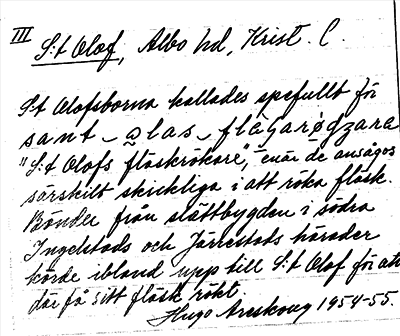 III
S:t Olof, Albo hd, Krist. C.
S:t Olofsborna kallades spefullt för
sant_olas_flàgarøgzara
"S:t Olofs fläskrökare", enär de ansågos
särskilt skickliga i att röka fläsk.
Bönder från slättbygden i södra
Ingelstads och Järrestads härader
körde ibland upp till S:t Olof för att
där få sitt fläsk rökt.
Hugo Areskoug 1954-55.